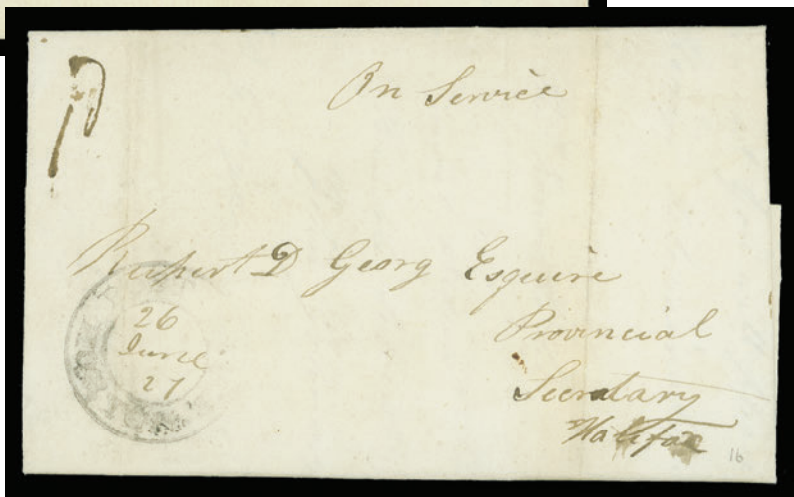 On Service
Rupert D Georg Esquire
Provincial
Secretary
Halifax
26
June
27
16